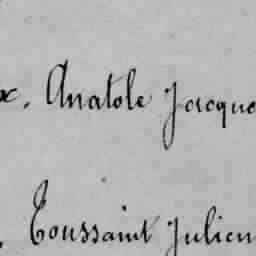 x. Anatole Jacque
Toussaint Julien